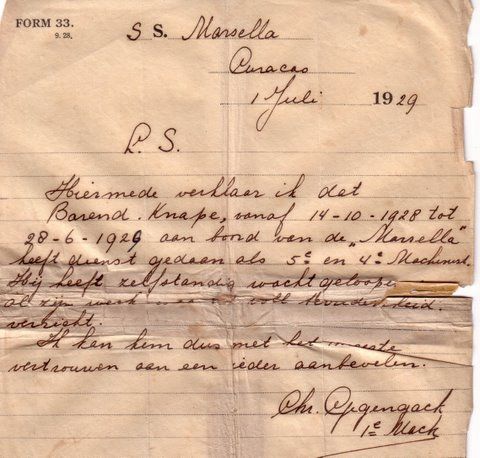 FORM 33.
9.28.
S S. Marsella
Curacao
1 Juli 1929
L. S.
Hiermede verklaar ik dat
Barend. Knape, vanaf 14-10-1928 tot
28-6-1929 aan boord van de „Marsella"
heeft dienst gedaan als 5e en 4e Machinist.
Hij heeft zelfstandig wacht geloope
al zijn werk
verricht.
Ik kan hem dus met het meeste
vertrouwen aan een ieder aanbevelen.
Chr.
1e Mach